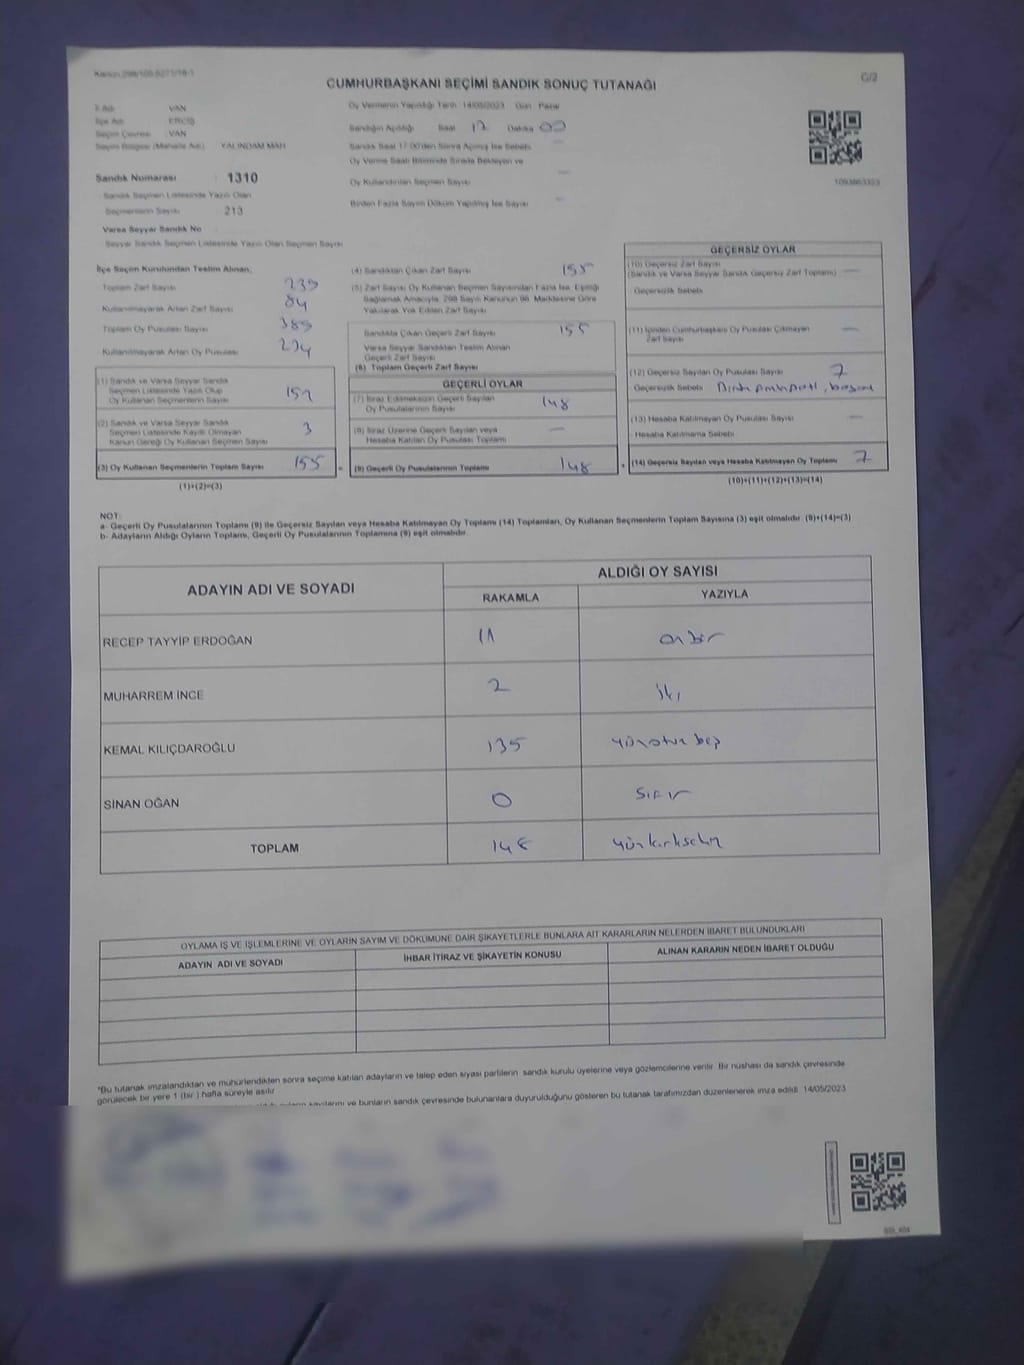 Kanun 298/105,6271/18-1
CUMHURBAŞKANI SEÇİMİ SANDIK SONUÇ TUTANAĞI
C/2
İl Adı : VAN
İlçe Adı : ERCİŞ
Seçim Çevresi : VAN
Seçim Bölgesi (Mahalle Adı) : YALINDAM MAH
Sandık Numarası : 1310
Sandık Seçmen Listesinde Yazılı Olan
Seçmenlerin Sayısı : 213
Varsa Seyyar Sandık No
Seyyar Sandık Seçmen Listesinde Yazılı Olan Seçmen Sayısı
Oy Vermenin Yapıldığı Tarih 14/05/2023 Gün Pazar
Sandığın Açıldığı Saat 17 Dakika 00
Sandık Saat 17.00'den Sonra Açılmış İse Sebebi
Oy Verme Saati Bitiminde Sırada Bekleyen ve
Oy Kullandırılan Seçmen Sayısı
Birden Fazla Sayım Döküm Yapılmış İse Sayısı
1093863323
İlçe Seçim Kurulundan Teslim Alınan;
Toplam Zarf Sayısı 239
Kullanılmayarak Artan Zarf Sayısı 84
Toplam Oy Pusulası Sayısı 389
Kullanılmayarak Artan Oy Pusulası 234
(1) Sandık ve Varsa Seyyar Sandık
Seçmen Listesinde Yazılı Olup
Oy Kullanan Seçmenlerin Sayısı 152
(2) Sandık ve Varsa Seyyar Sandık
Seçmen Listesinde Kayıtlı Olmayan
Kanun Gereği Oy Kullanan Seçmen Sayısı 3
(3) Oy Kullanan Seçmenlerin Toplam Sayısı 155 =
(1)+(2)=(3)
(4) Sandıktan Çıkan Zarf Sayısı 155
(5) Zarf Sayısı Oy Kullanan Seçmen Sayısından Fazla İse, Eşitliği
Sağlamak Amacıyla, 298 Sayılı Kanunun 98. Maddesine Göre
Yakılarak Yok Edilen Zarf Sayısı
Sandıkta Çıkan Geçerli Zarf Sayısı 155
Varsa Seyyar Sandıktan Teslim Alınan
Geçerli Zarf Sayısı
(6) Toplam Geçerli Zarf Sayısı
GEÇERLİ OYLAR
(7) İtiraz Edilmeksizin Geçerli Sayılan
Oy Pusulalarının Sayısı 148
(8) İtiraz Üzerine Geçerli Sayılan veya
Hesaba Katılan Oy Pusulası Toplamı
(9) Geçerli Oy Pusulalarının Toplamı 148 +
GEÇERSİZ OYLAR
(10) Geçersiz Zarf Sayısı
(Sandık ve Varsa Seyyar Sandık Geçersiz Zarf Toplamı)
Geçersizlik Sebebi
(11) İçinden Cumhurbaşkanı Oy Pusulası Çıkmayan
Zarf Sayısı
(12) Geçersiz Sayılan Oy Pusulası Sayısı 7
Geçersizlik Sebebi
(13) Hesaba Katılmayan Oy Pusulası Sayısı
Hesaba Katılmama Sebebi
(14) Geçersiz Sayılan veya Hesaba Katılmayan Oy Toplamı 7
(10)+(11)+(12)+(13)=(14)
NOT:
a- Geçerli Oy Pusulalarının Toplamı (9) ile Geçersiz Sayılan veya Hesaba Katılmayan Oy Toplamı (14) Toplamları, Oy Kullanan Seçmenlerin Toplam Sayısına (3) eşit olmalıdır. (9)+(14)=(3)
b- Adayların Aldığı Oyların Toplamı, Geçerli Oy Pusulalarının Toplamına (9) eşit olmalıdır.
ADAYIN ADI VE SOYADI
ALDIĞI OY SAYISI
RAKAMLA YAZIYLA
RECEP TAYYİP ERDOĞAN 11 onbir
MUHARREM İNCE 2 iki
KEMAL KILIÇDAROĞLU 135 yüzotuz beş
SİNAN OĞAN 0 sıfır
TOPLAM 148 yüzkırksekiz
OYLAMA İŞ VE İŞLEMLERİNE VE OYLARIN SAYIM VE DÖKÜMÜNE DAİR ŞİKAYETLERLE BUNLARA AİT KARARLARIN NELERDEN İBARET BULUNDUKLARI
ADAYIN ADI VE SOYADI İHBAR İTİRAZ VE ŞİKAYETİN KONUSU ALINAN KARARIN NEDEN İBARET OLDUĞU
*Bu tutanak imzalandıktan ve mühürlendikten sonra seçime katılan adayların ve talep eden siyasi partilerin sandık kurulu üyelerine veya gözlemcilerine verilir. Bir nüshası da sandık çevresinde
görülecek bir yere 1 (bir ) hafta süreyle asılır.
oyların sayılarını ve bunların sandık çevresinde bulunanlara duyurulduğunu gösteren bu tutanak tarafımızdan düzenlenerek imza edildi. 14/05/2023